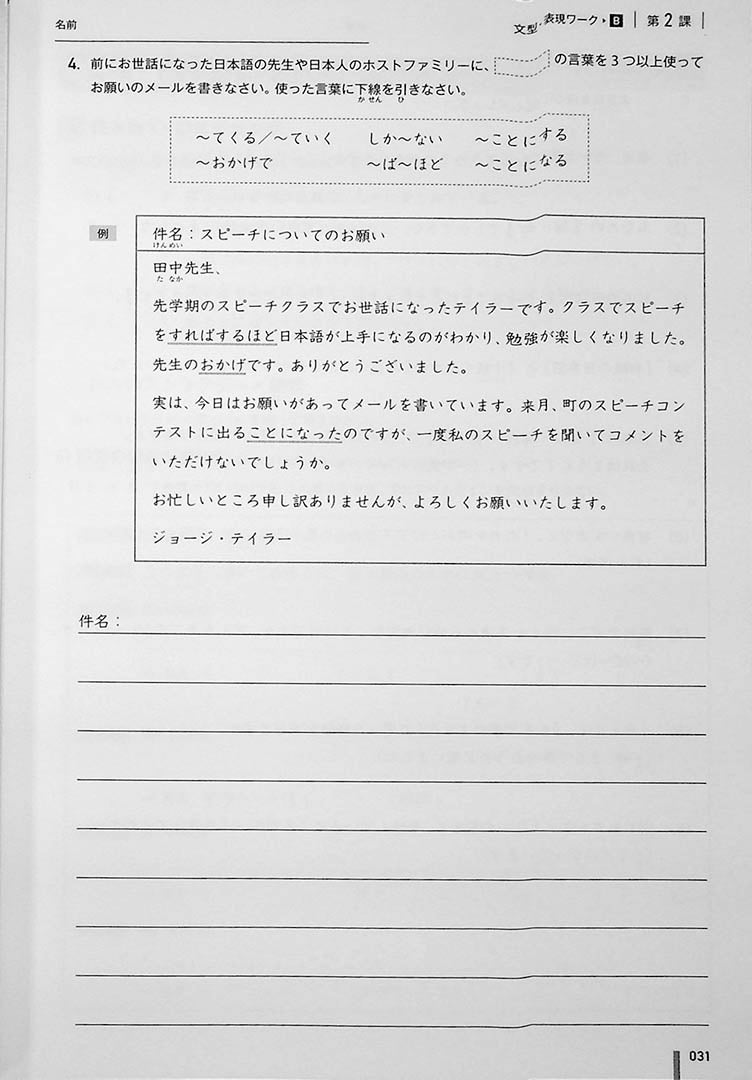 名前
文型・表現ワーク▶B 第2課
4. 前にお世話になった日本語の先生や日本人のホストファミリーに、 の言葉を3つ以上使って
お願いのメールを書きなさい。使った言葉に下線を引きなさい。
かせん ひ
〜てくる／〜ていく しか〜ない 〜ことにする
〜おかげで 〜ば〜ほど 〜ことになる
例
件名：スピーチについてのお願い
けんめい
田中先生、
たなか
先学期のスピーチクラスでお世話になったテイラーです。クラスでスピーチ
をすればするほど日本語が上手になるのがわかり、勉強が楽しくなりました。
先生のおかげです。ありがとうございました。
実は、今日はお願いがあってメールを書いています。来月、町のスピーチコン
テストに出ることになったのですが、一度私のスピーチを聞いてコメントを
いただけないでしょうか。
お忙しいところ申し訳ありませんが、よろしくお願いいたします。
ジョージ・テイラー
件名：
031